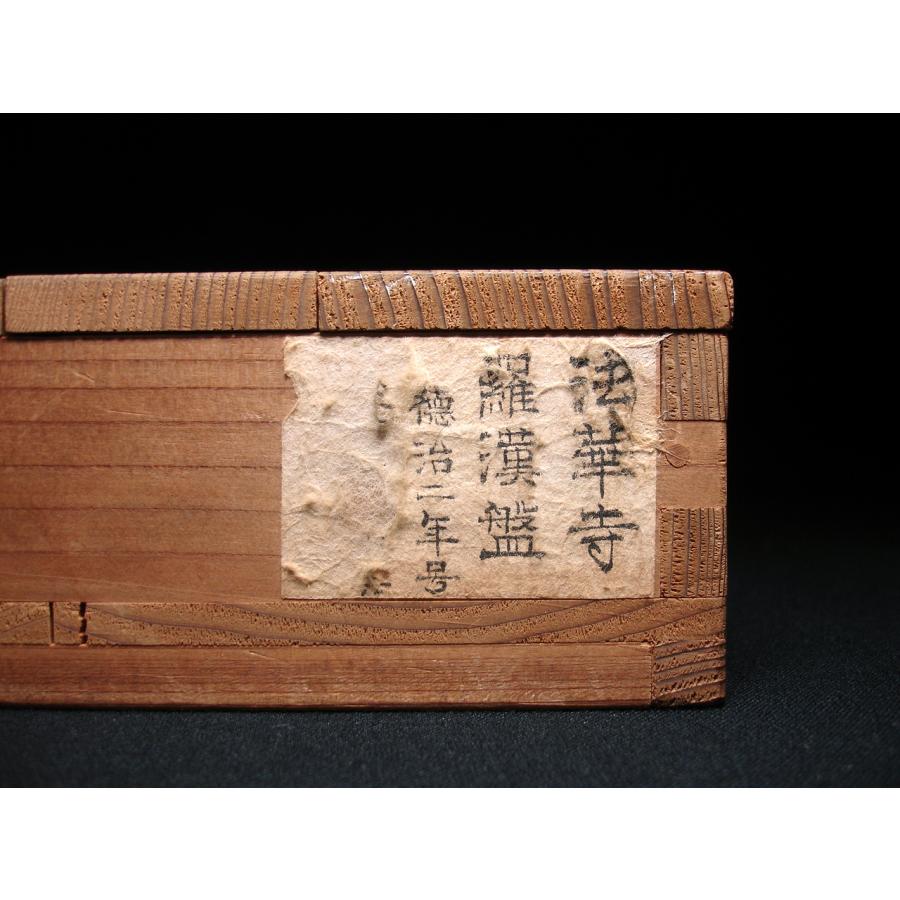 法華寺
羅漢盤
德治二年号